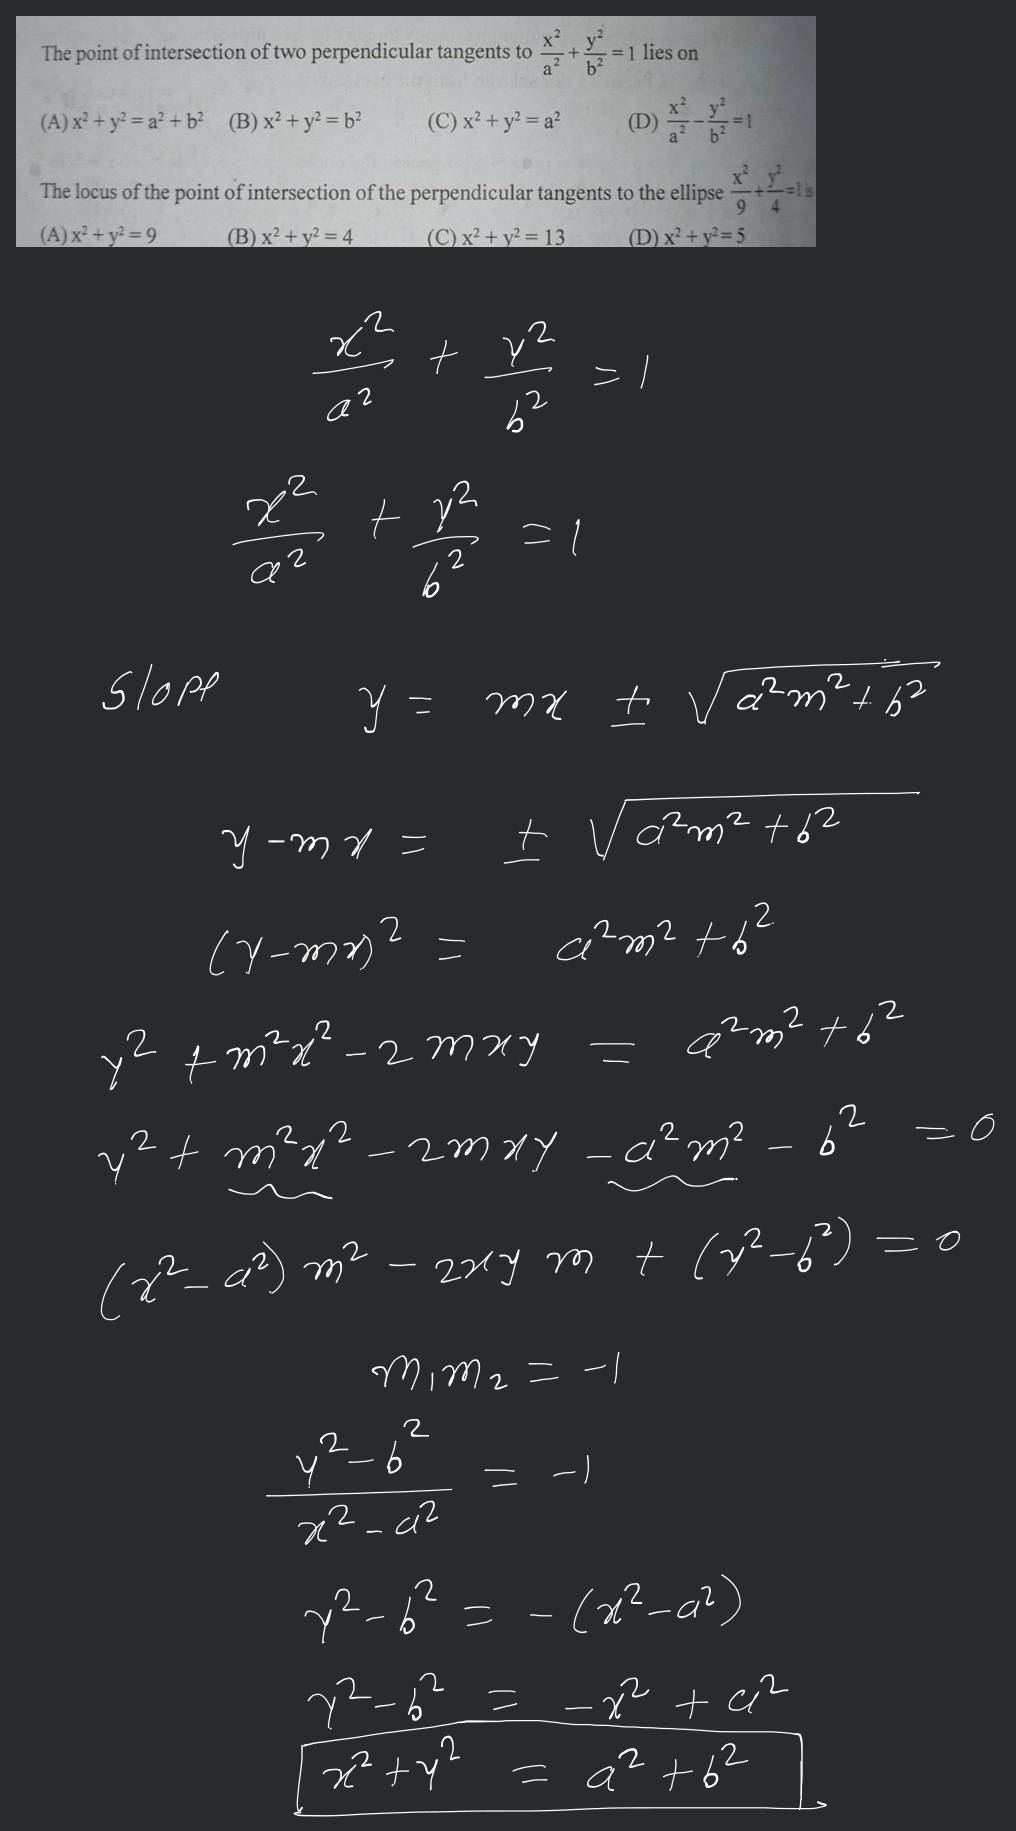 The point of intersection of two perpendicular tangents to x²/a² + y²/b² = 1 lies on
(A) x² + y² = a² + b² (B) x² + y² = b² (C) x² + y² = a² (D) x²/a² − y²/b² = 1
The locus of the point of intersection of the perpendicular tangents to the ellipse x²/9 + y²/4 = 1 is
(A) x² + y² = 9 (B) x² + y² = 4 (C) x² + y² = 13 (D) x² + y² = 5
x²/a² + y²/b² = 1
x²/a² + y²/b² = 1
Slope y = mx ± √(a²m² + b²)
y − mx = ± √(a²m² + b²)
(y − mx)² = a²m² + b²
y² + m²x² − 2mxy = a²m² + b²
y² + m²x² − 2mxy − a²m² − b² = 0
(x² − a²) m² − 2xy m + (y² − b²) = 0
m₁m₂ = −1
(y² − b²)/(x² − a²) = −1
y² − b² = −(x² − a²)
y² − b² = −x² + a²
x² + y² = a² + b²